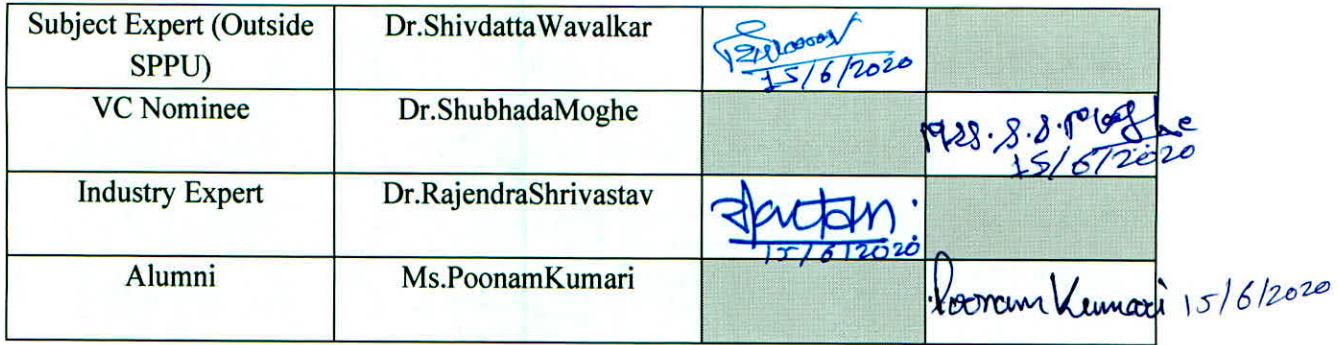 Subject Expert (Outside SPPU) Dr.ShivdattaWavalkar
15/6/2020
VC Nominee Dr.ShubhadaMoghe
S.S.Moghe
15/6/2020
Industry Expert Dr.RajendraShrivastav
15/6/2020
Alumni Ms.PoonamKumari
Poonam Kumari 15/6/2020